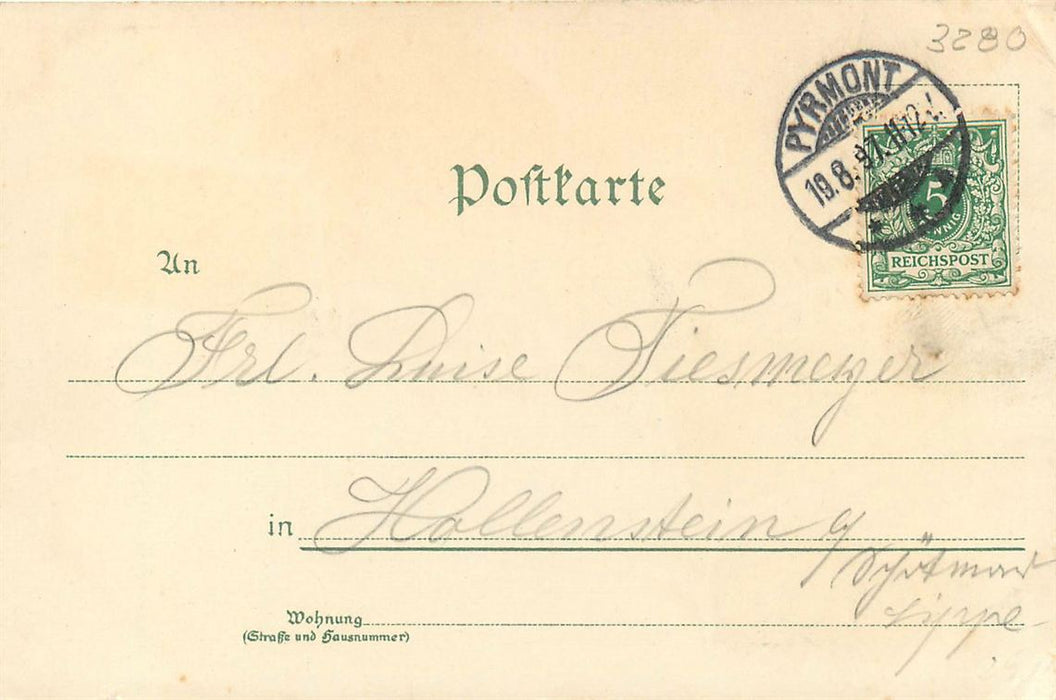 3280
PYRMONT
19.8.97.11-12V.
5
PFENNIG
REICHSPOST
Postkarte
An
Frl. Luise Tiesmeyer
in Hollenstein a/
Schötmar
Lippe
Wohnung
(Straße und Hausnummer)